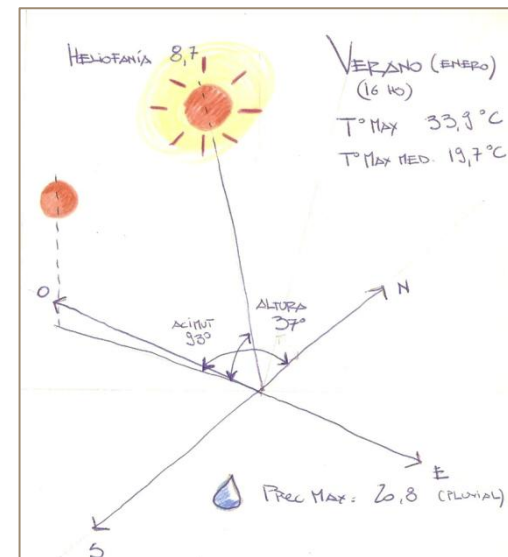 HELIOFANÍA 8,7
VERANO (ENERO)
(16 HO)
T° MAX 33,9°C
T° MAX MED. 19,7°C
O
N
ACIMUT
93°
ALTURA
37°
E
PREC MAX: 20,8 (PLUVIAL)
S